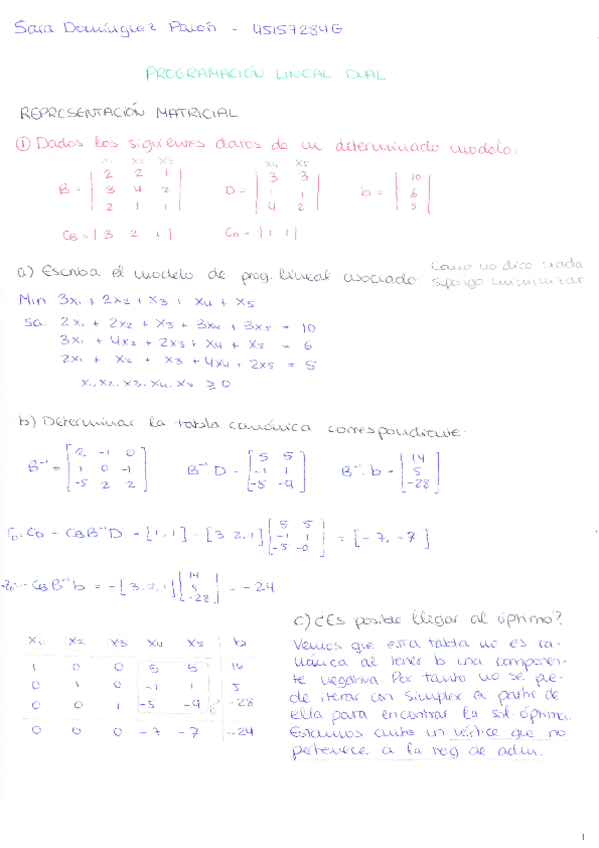 Sara Domínguez Pavón - 45157284G
PROGRAMACIÓN LINEAL DUAL
REPRESENTACIÓN MATRICIAL
① Dados los siguientes datos de un determinado modelo:
x1 x2 x3
x4 x5
B = | 2 2 1 | D = | 3 3 | b = | 10 |
| 3 4 2 | | 1 1 | | 6 |
| 2 1 1 | | 4 2 | | 5 |
CB = | 3 2 1 | CD = | 1 1 |
a) Escriba el modelo de prog. lineal asociado: Como no dice nada
supongo minimizar
Min 3x1 + 2x2 + x3 + x4 + x5
sa. 2x1 + 2x2 + x3 + 3x4 + 3x5 = 10
3x1 + 4x2 + 2x3 + x4 + x5 = 6
2x1 + x2 + x3 + 4x4 + 2x5 = 5
x1, x2, x3, x4, x5 ≥ 0
b) Determinar la tabla canónica correspondiente.
B⁻¹ = [ 2 -1 0 ] B⁻¹·D = [ 5 5 ] B⁻¹·b = [ 14 ]
[ 1 0 -1 ] [ -1 1 ] [ 5 ]
[ -5 2 2 ] [ -5 -9 ] [ -28 ]
rD = CD - CBB⁻¹D = [1, 1] - [3, 2, 1] [ 5 5 ] = [-7, -7]
[ -1 1 ]
-z0 = -CBB⁻¹b = -[3, 2, 1] [ 14 ] = -24
[ 5 ]
[ -28 ]
x1 x2 x3 x4 x5 b
1 0 0 5 5 14
0 1 0 -1 1 5
0 0 1 -5 -9 -28
0 0 0 -7 -7 -24
c) ¿Es posible llegar al óptimo?
Vemos que esta tabla no es ca-
nónica al tener b una componen-
te negativa. Por tanto no se pue-
de iterar con simplex a partir de
ella para encontrar la sol. óptima.
Estamos ante un vértice que no
pertenece a la reg. de adm.
1